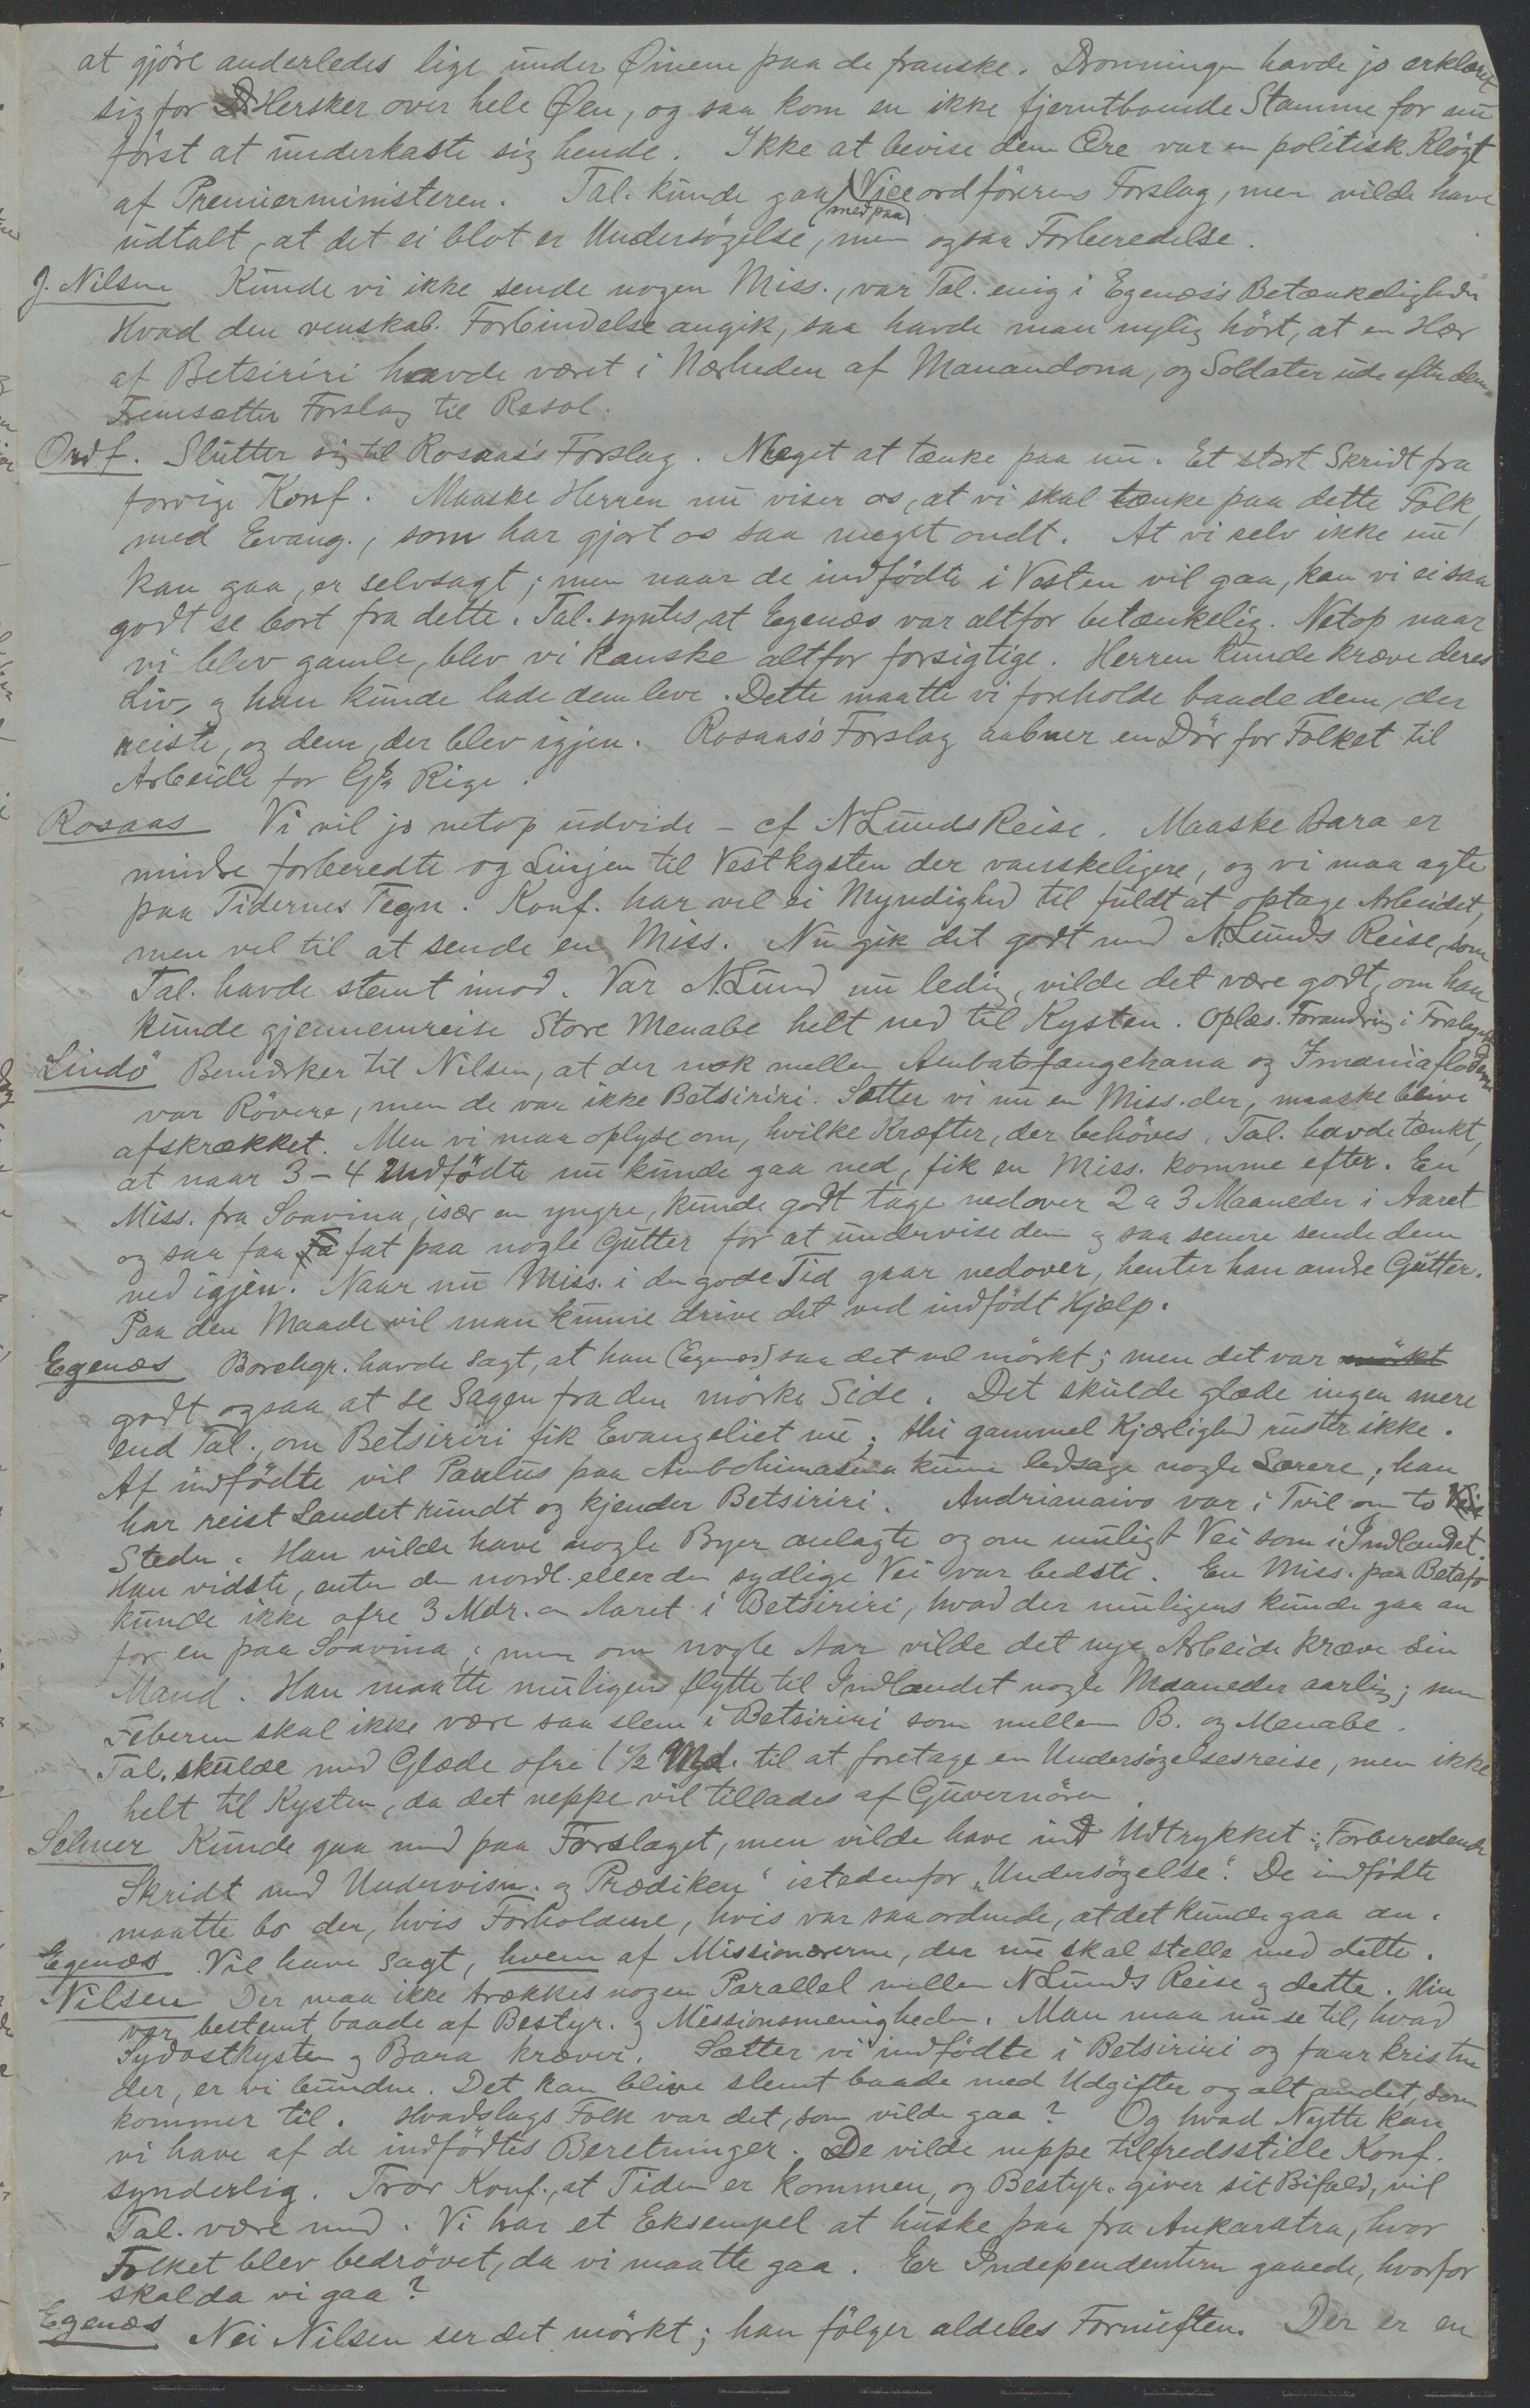 at gjöre anderledes lige under Öinene paa de franske. Dronningen havde jo erklæret
sig for Hersker over hele Öen, og saa kom en ikke fjerntboende Stamme for nu
först at underkaste sig hende. Ikke at bevise dem Ære var en politisk Klögt
af Premierministeren. Tal. kunde gaa med paa Viceordförerens Forslag, men vilde have
udtalt, at det ei blot er Undersögelse, men ogsaa Forberedelse.
J. Nilsen Kunde vi ikke sende nogen Miss., var Tal. enig i Egenæs's Betænkeligheder
Hvad den venskab. Forbindelse angik, saa havde man nylig hört, at en Hær
af Betsiriri havde været i Nærheden af Manandona, og Soldater ude efter dem.
Fremsætter Forslag til Resol.
Ordf. Slutter sig til Rosaas's Forslag. Meget at tænke paa nu. Et stort Skridt fra
forrige Konf. Maaske Herren nu viser os, at vi skal tænke paa dette Folk,
med Evang., som har gjort os saa meget ondt. At vi selv ikke nu
kan gaa, er selvsagt; men naar de indfödte i Vesten vil gaa, kan vi ei saa
godt se bort fra dette. Tal. syntes, at Egenæs var altfor betænkelig. Netop naar
vi blev gamle, blev vi kanske altfor forsigtige. Herren kunde kræve deres
Liv, og han kunde lade dem leve. Dette maatte vi foreholde baade dem, der
reiste, og dem, der blev igjen. Rosaas's Forslag aabner en Dör for Folket til
Arbeide for Gs Rige.
Rosaas Vi vil jo netop udvide - cf NLunds Reise. Maaske Bara er
mindre forberedte og Linjen til Vestkysten der vanskeligere, og vi maa agte
paa Tidernes Tegn. Konf. har vel ei Myndighed til fuldt at optage Arbeidet,
men vel til at sende en Miss. Nu gik det godt med NLunds Reise, som
Tal. havde stemt imod. Var NLund nu ledig, vilde det være godt, om han
kunde gjennemreise Store Menabe helt ned til Kysten. Oplæs. Forandring i Forslaget
Lindö Bemærker til Nilsen, at der nok mellem Ambatofangehana og Imaniafloden
var Rövere, men de var ikke Betsiriri. Sætter vi nu en Miss. der, maaske blive
afskrækket. Men vi maa oplyse om, hvilke Kræfter, der behöves. Tal. havde tænkt,
at naar 3-4 Indfödte nu kunde gaa ned, fik en Miss. komme efter. En
Miss. fra Soavina, især en yngre, kunde godt tage nedover 2 a 3 Maaneder i Aaret
og saa faa fat paa nogle Gutter for at undervise dem og saa senere sende dem
ned igjen. Naar nu Miss. i den gode Tid gaar nedover, henter han andre Gutter.
Paa den Maade vil man kunne drive det ved indfödt Hjælp.
Egenæs Borchgr. havde sagt, at han (Egenæs) saa det vel mörkt; men det var mörkt
godt ogsaa at se Sagen fra den mörke Side. Det skulde glæde ingen mere
end Tal., om Betsiriri fik Evangeliet nu; thi gammel Kjærlighed ruster ikke.
Af indfödte vil Paulus paa Ambohimasina kunne ledsage nogle Lærere; han
har reist Landet rundt og kjender Betsiriri. Andrianaivo var i Tvil om to
Steder. Han vilde have nogle Byer anlagte og om muligt Vei som i Indlandet.
Han vidste, enten den nordl. eller den sydlige Vei var bedste. En Miss. paa Betafo
kunde ikke ofre 3 Mdr. om Aaret i Betsiriri, hvad der muligens kunde gaa an
for en paa Soavina; men om nogle Aar vilde det nye Arbeide kræve sin
Mand. Han maatte muligens flytte til Indlandet nogle Maaneder aarlig; men
Feberen skal ikke være saa slem i Betsiriri som mellem B. og Menabe.
Tal. skulde med Glæde ofre 1 1/2 Md. til at foretage en Undersögelsesreise, men ikke
helt til Kysten, da det neppe vil tillades af Guvernören.
Selmer Kunde gaa med paa Forslaget, men vilde have ind Udtrykket: "Forberedende
Skridt med Undervisn. og Prædiken" istedenfor "Undersögelse". De indfödte
maatte bo der, hvis Forholdene, hvis var saa ordnede, at det kunde gaa an.
Egenæs Vil have sagt, hvem af Missionærerne, der nu skal stelle med dette.
Nilsen Der maa ikke trækkes nogen Parallel mellem NLunds Reise og dette. Hin
var bestemt baade af Bestyr. og Missionsmenigheden. Man maa nu se til, hvad
Sydostkysten og Bara kræver. Sætter vi indfödte i Betsiriri og faar kristne
der, er vi bundne. Det kan blive slemt baade med Udgifter og alt andet, som
kommer til. Hvadslags Folk var det, som vilde gaa? Og hvad Nytte kan
vi have af de indfödtes Beretninger. De vilde neppe tilfredsstille Konf.
synderlig. Tror Konf., at Tiden er kommen, og Bestyr. giver sit Bifald, vil
Tal. være med. Vi har et Eksempel at huske paa fra Ankaratra, hvor
Folket blev bedrövet, da vi maatte gaa. Er Independenterne gaaede, hvorfor
skal da vi gaa?
Egenæs Nei Nilsen ser det mörkt; han fölger aldeles Fornuften. Der er en